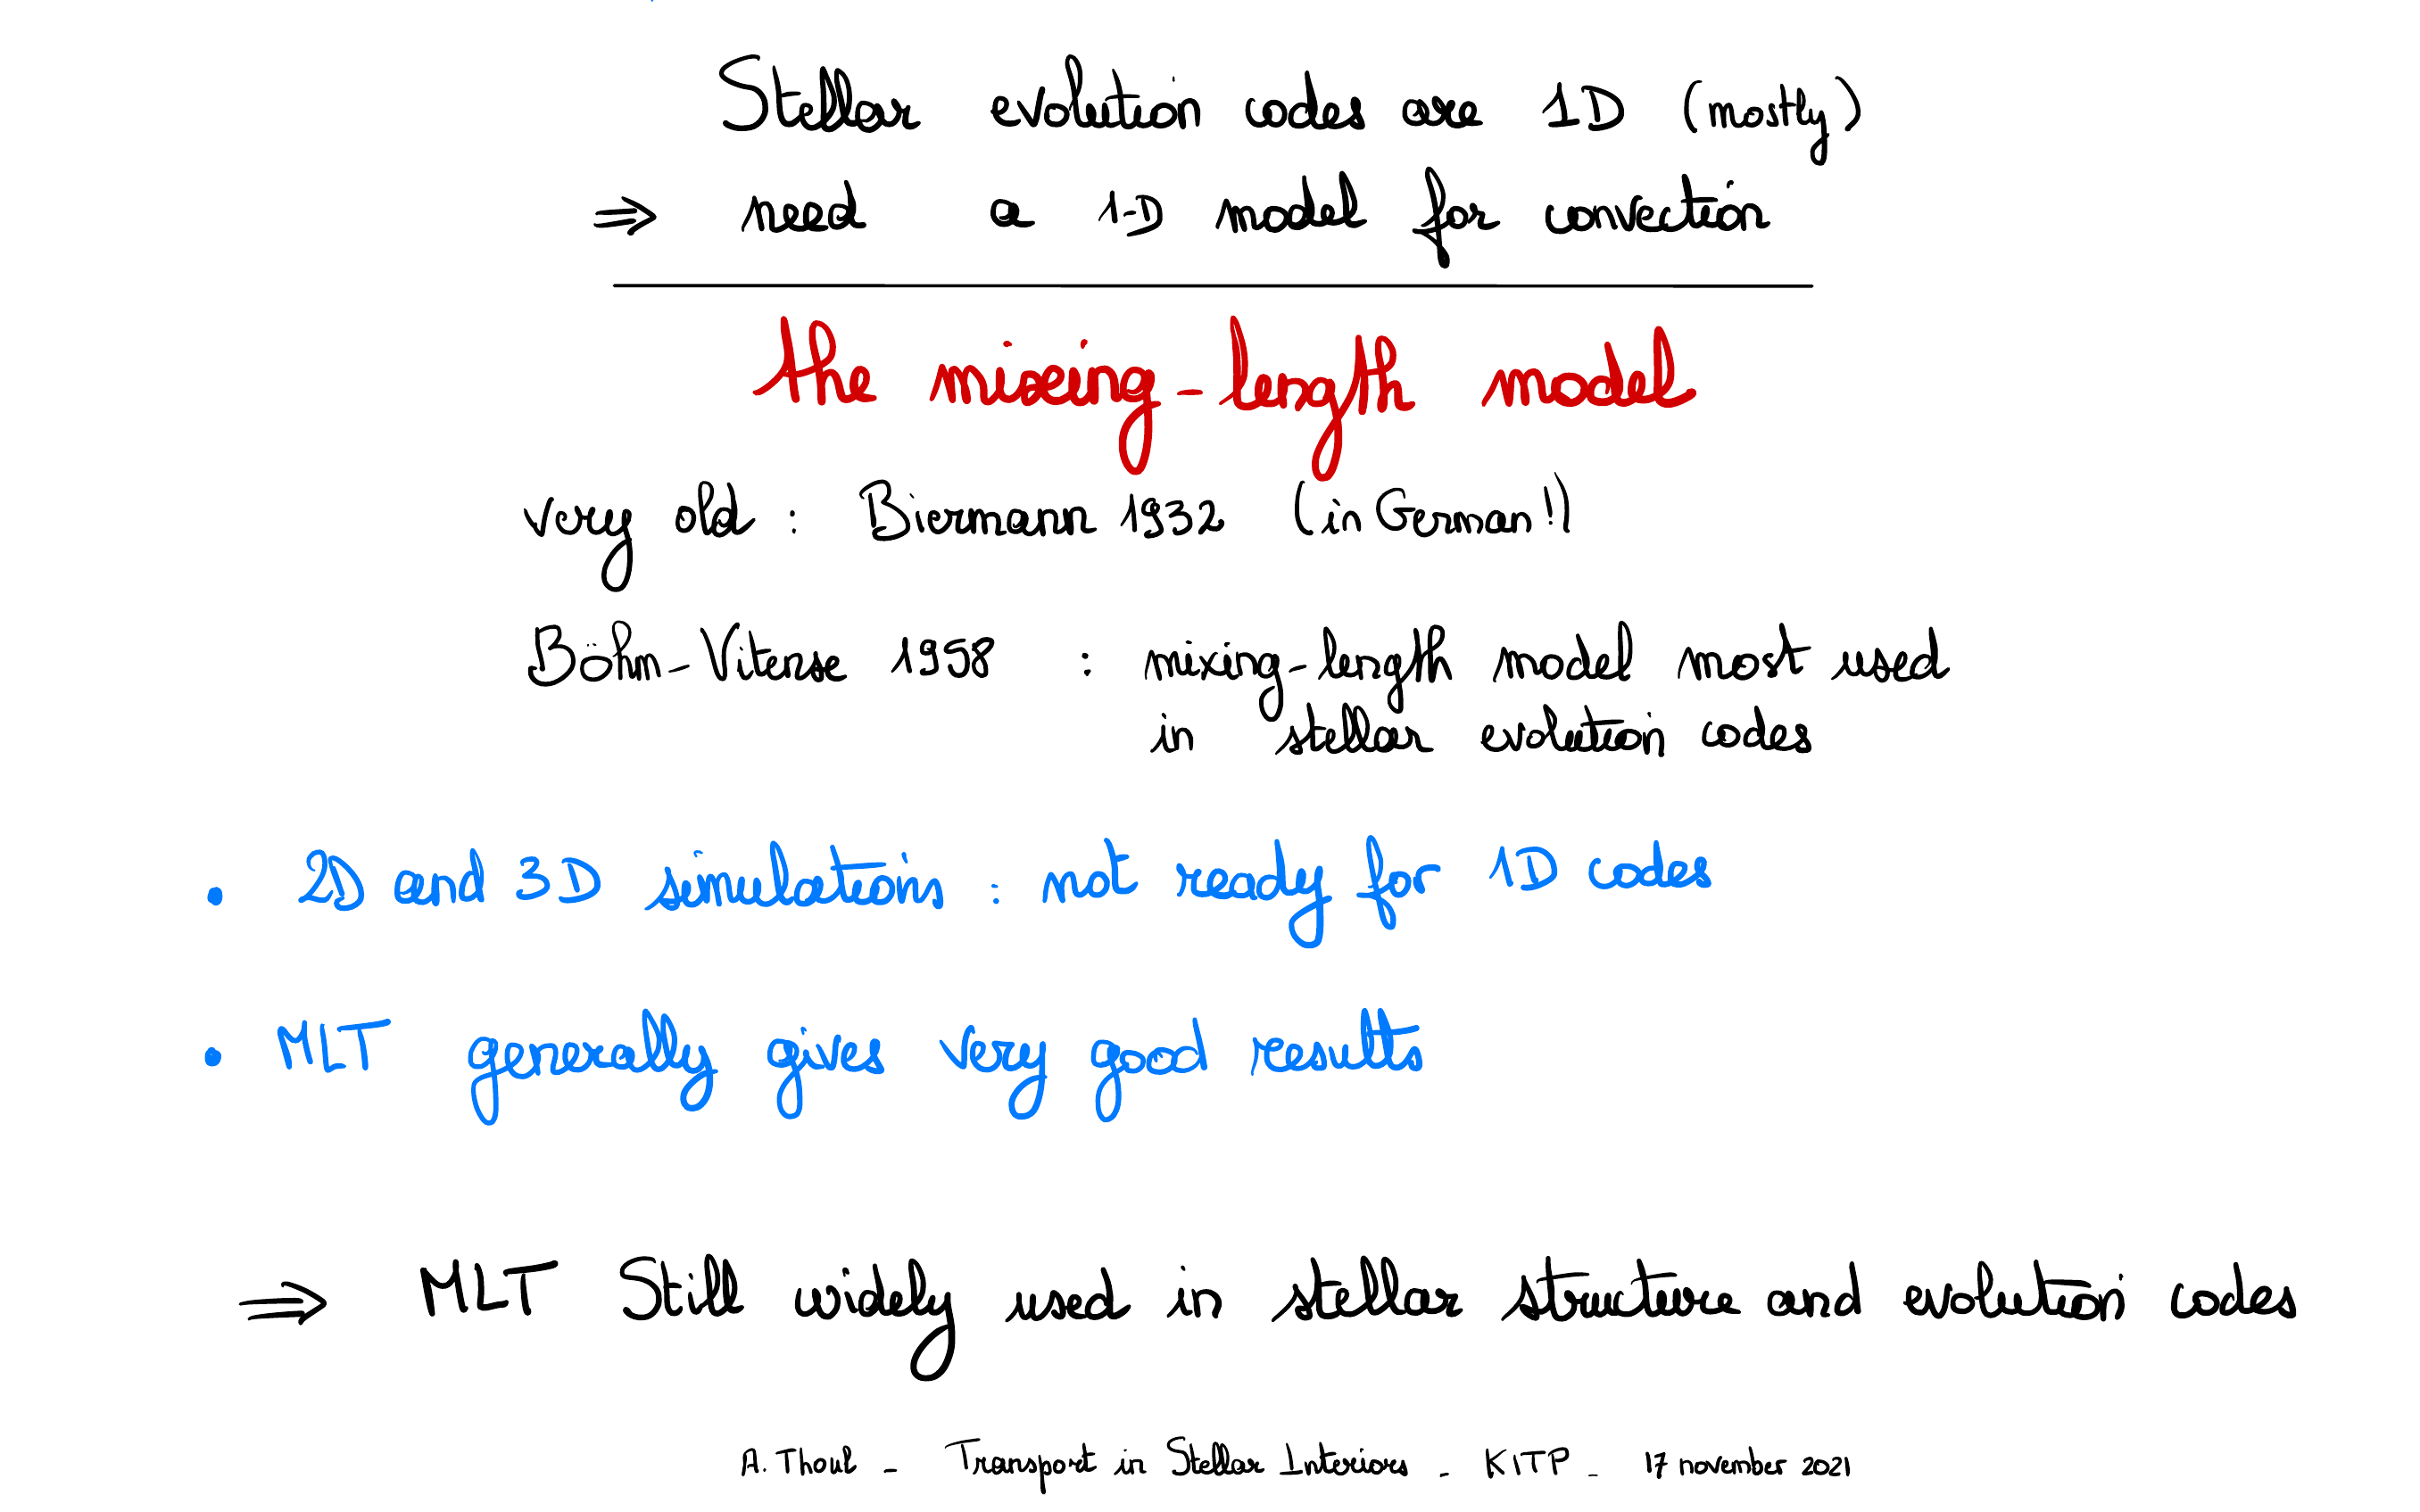 Stellar evolution codes are 1D (mostly)
⇒ need a 1-D model for convection
the mixing-length model
very old : Biermann 1932 (in German!)
Böhm-Vitense 1958 : mixing-length model most used
in stellar evolution codes
• 2D and 3D simulations : not ready for 1D codes
• MLT generally gives very good results
⇒ MLT Still widely used in stellar structure and evolution codes
A. Thoul - Transport in Stellar Interiors - KITP - 17 november 2021